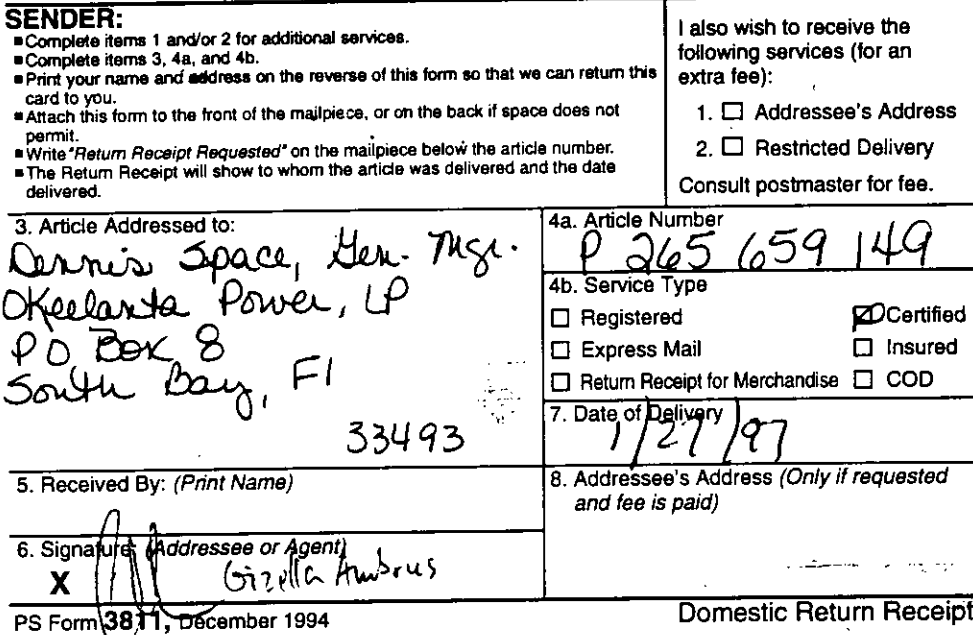 SENDER:
■Complete items 1 and/or 2 for additional services.
■Complete items 3, 4a, and 4b.
■Print your name and address on the reverse of this form so that we can return this
card to you.
■Attach this form to the front of the mailpiece, or on the back if space does not
permit.
■Write "Return Receipt Requested" on the mailpiece below the article number.
■The Return Receipt will show to whom the article was delivered and the date
delivered.
I also wish to receive the
following services (for an
extra fee):
1. ☐ Addressee's Address
2. ☐ Restricted Delivery
Consult postmaster for fee.
3. Article Addressed to:
Dennis Space, Gen. Mgr.
Okeelanta Power, LP
PO Box 8
South Bay, Fl
33493
4a. Article Number
P 265 659 149
4b. Service Type
☐ Registered ☑ Certified
☐ Express Mail ☐ Insured
☐ Return Receipt for Merchandise ☐ COD
7. Date of Delivery
1/27/97
5. Received By: (Print Name)
8. Addressee's Address (Only if requested
and fee is paid)
6. Signature: (Addressee or Agent)
X Gizella Ambrus
PS Form 3811, December 1994
Domestic Return Receipt